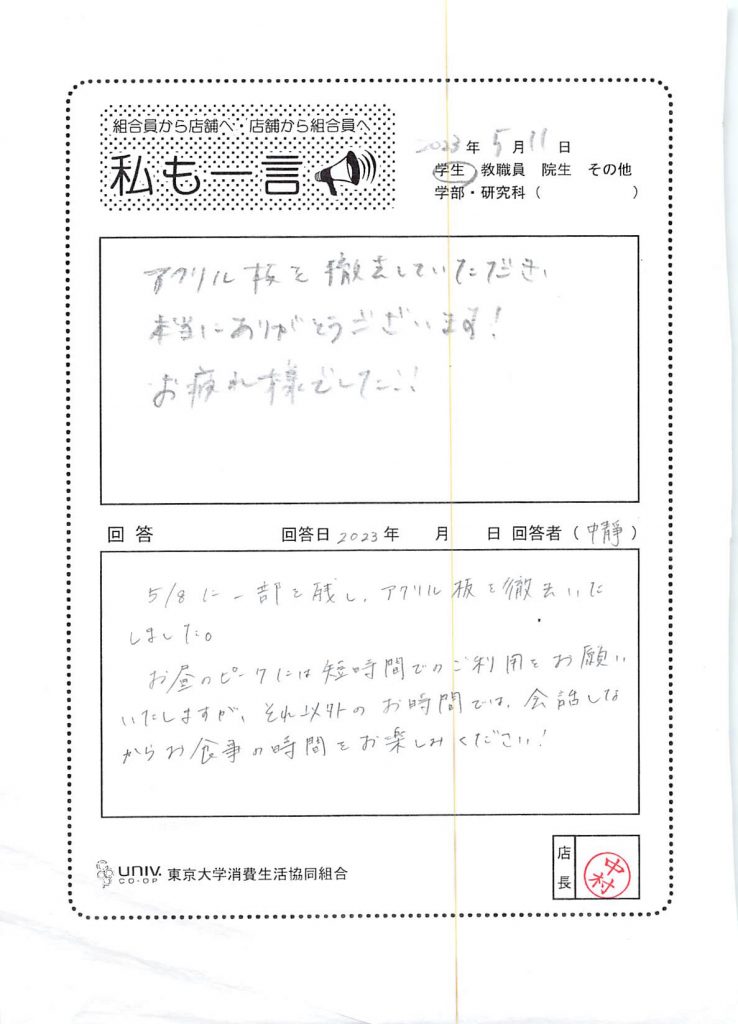 組合員から店舗へ・店舗から組合員へ
私も一言
2023年5月11日
学生 教職員 院生 その他
学部・研究科（ ）
アクリル板を撤去していただき、
本当にありがとうございます！
お疲れ様でした!!
回答 回答日2023年 月 日 回答者（中静）
5/8に一部を残し、アクリル板を撤去いた
しました。
お昼のピークには短時間でのご利用をお願い
いたしますが、それ以外のお時間では、会話しな
からお食事の時間をお楽しみください！
UNIV. CO-OP 東京大学消費生活協同組合
店長 中村